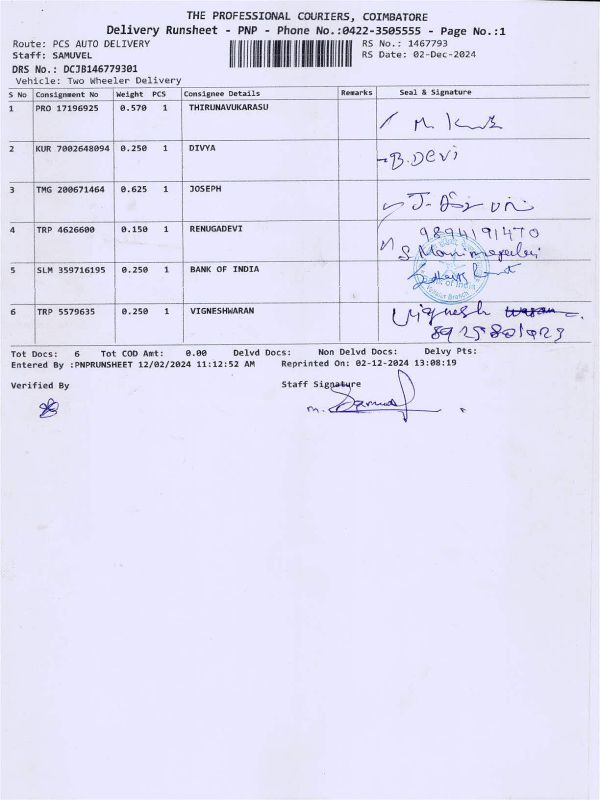 THE PROFESSIONAL COURIERS, COIMBATORE
Delivery Runsheet - PNP - Phone No.:0422-3505555 - Page No.:1
Route: PCS AUTO DELIVERY
RS No.: 1467793
Staff: SAMUVEL
RS Date: 02-Dec-2024
DRS No.: DCJB146779301
Vehicle: Two Wheeler Delivery
S No Consignment No Weight PCS Consignee Details Remarks Seal & Signature
1 PRO 17196925 0.570 1 THIRUNAVUKARASU
2 KUR 7002648094 0.250 1 DIVYA B.Devi
3 TMG 200671464 0.625 1 JOSEPH
4 TRP 4626600 0.150 1 RENUGADEVI 9894191470
5 SLM 359716195 0.250 1 BANK OF INDIA
6 TRP 5579635 0.250 1 VIGNESHWARAN Vignesh
8925801023
Tot Docs: 6 Tot COD Amt: 0.00 Delvd Docs: Non Delvd Docs: Delvy Pts:
Entered By :PNPRUNSHEET 12/02/2024 11:12:52 AM Reprinted On: 02-12-2024 13:08:19
Verified By Staff Signature